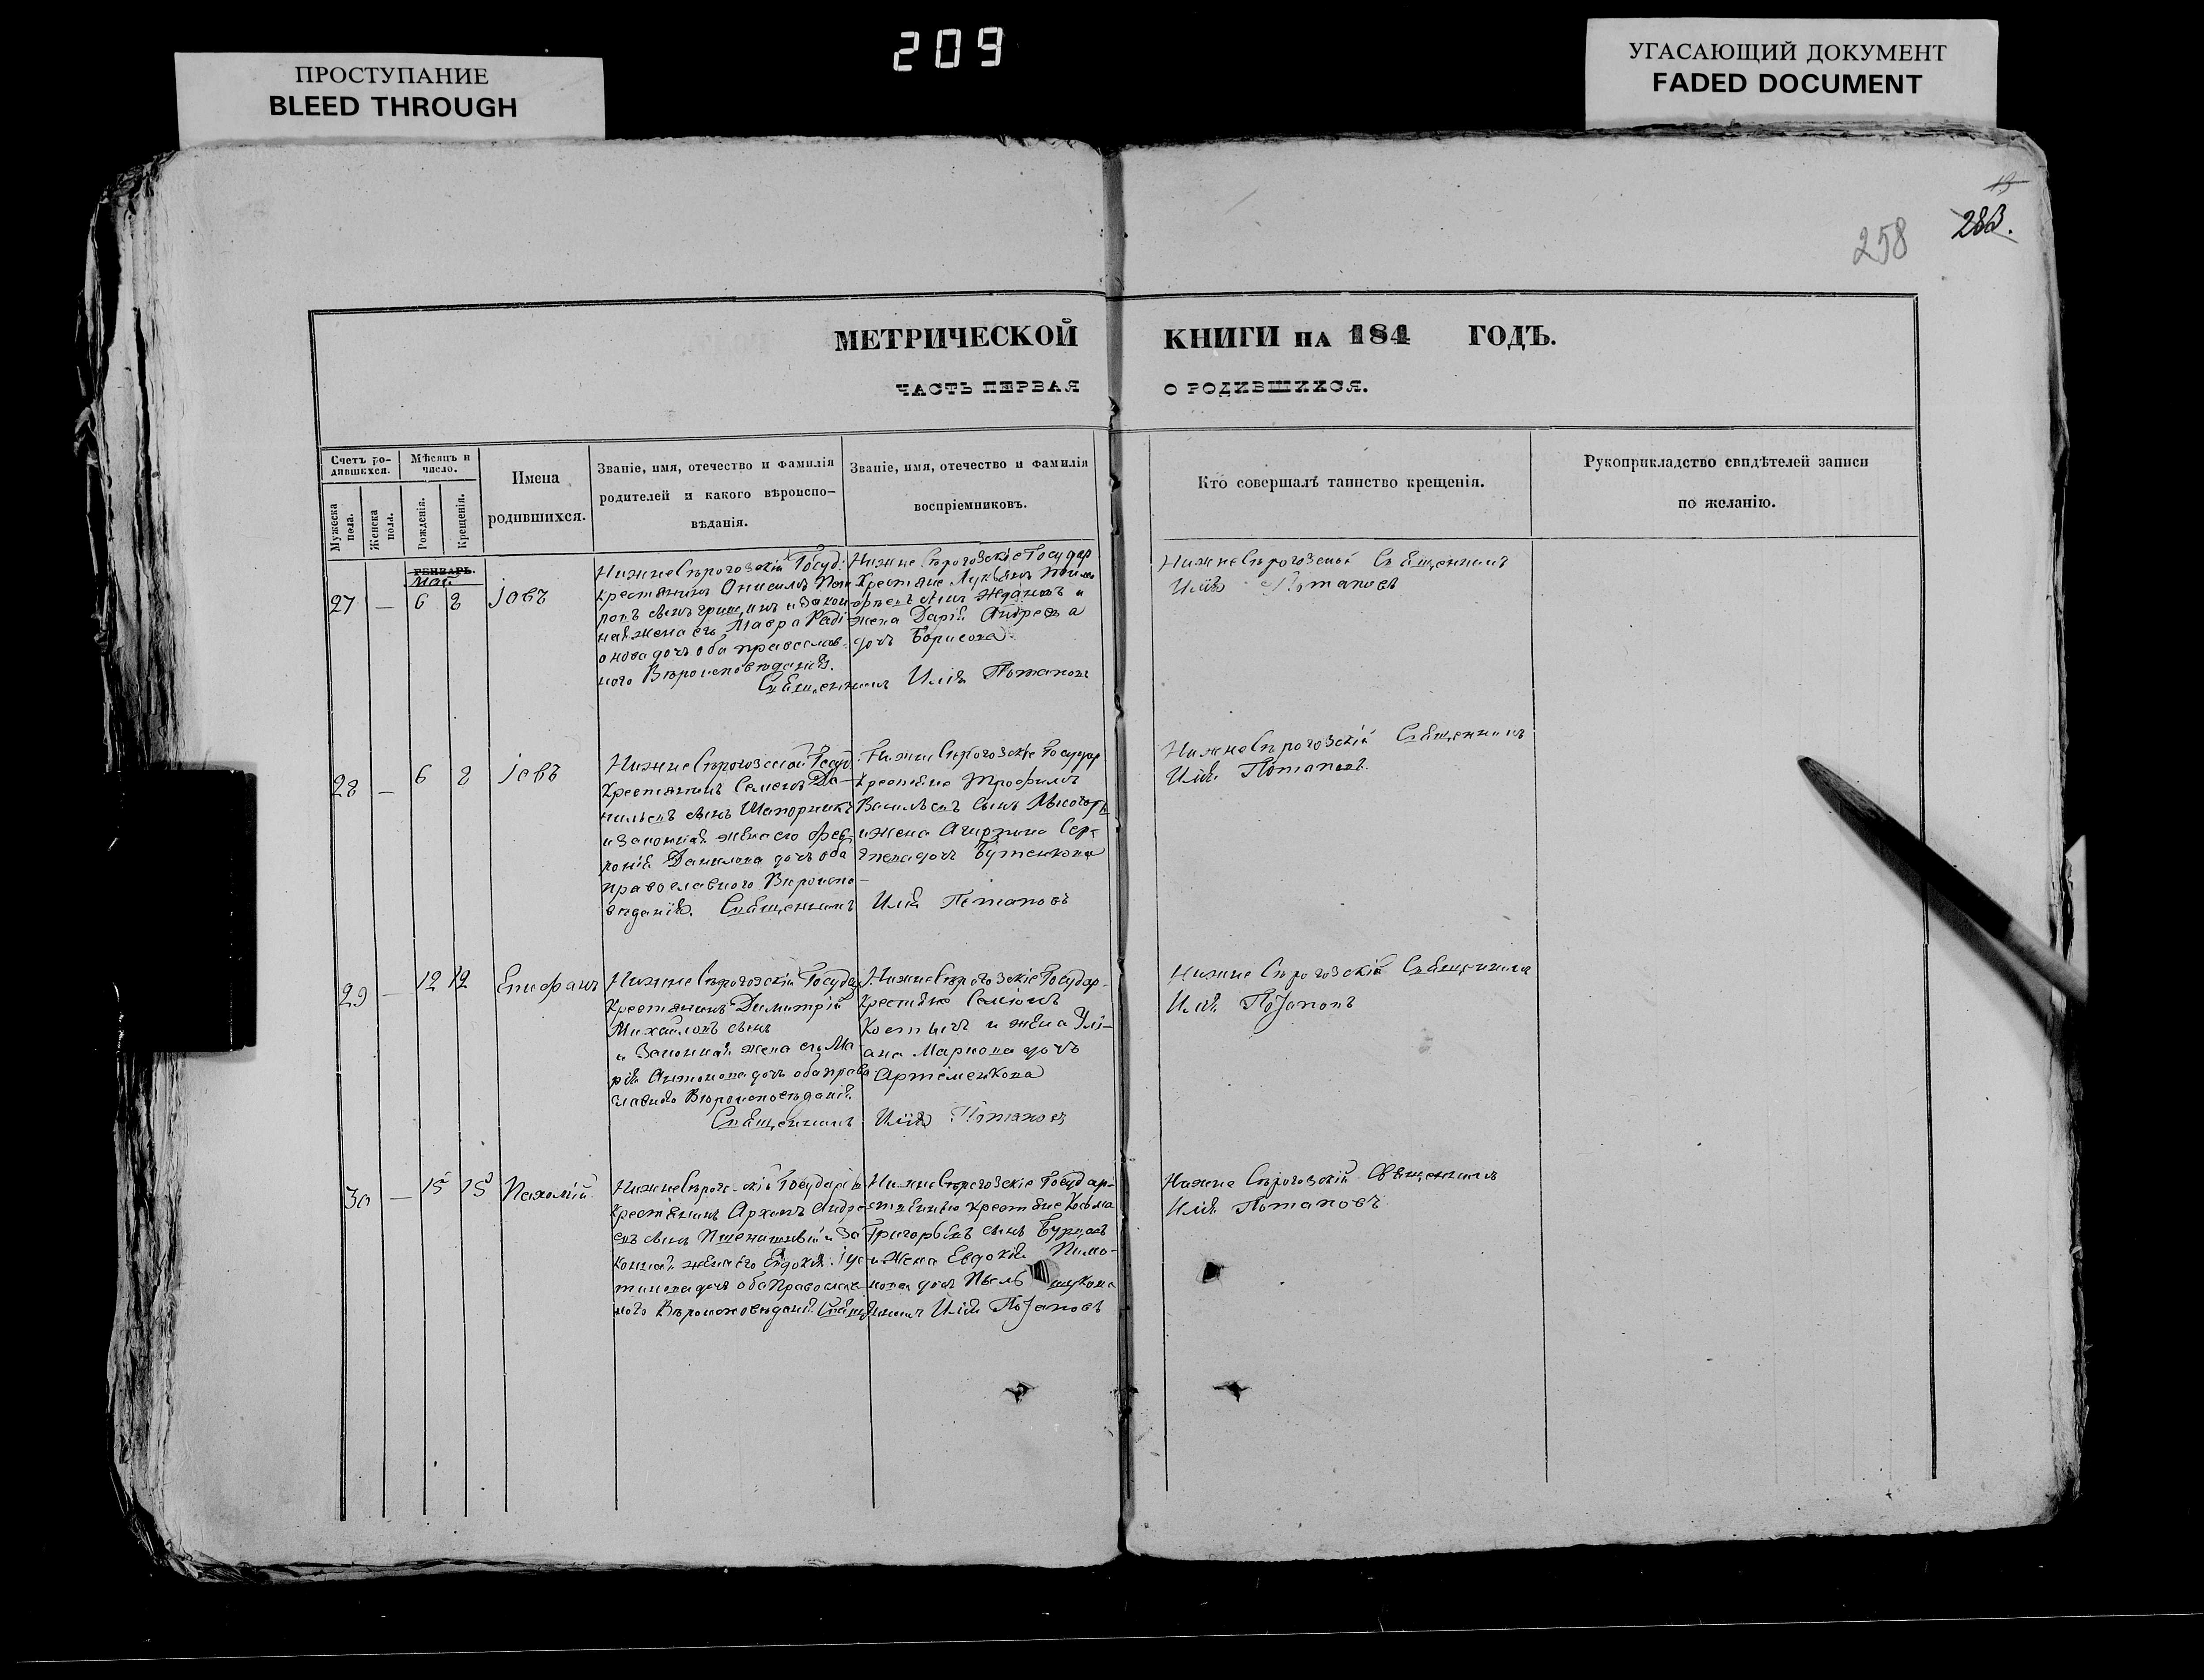 209
ПРОСТУПАНИЕ
BLEED THROUGH
УГАСАЮЩИЙ ДОКУМЕНТ
FADED DOCUMENT
258
МЕТРИЧЕСКОЙ КНИГИ НА 184 ГОДЪ.
ЧАСТЬ ПЕРВАЯ О РОДИВШИХСЯ.
Счетъ ро-
дившихся.
Мужеска
пола.
Женска
пола.
Мѣсяцъ и
число.
Рожденія.
Крещенія.
Имена
родившихся.
Званіе, имя, отечество и фамилія
родителей и какого вѣроиспо-
вѣданія.
Званіе, имя, отечество и фамилія
воспріемниковъ.
Кто совершалъ таинство крещенія.
Рукоприкладство свидѣтелей записи
по желанію.
ГЕНВАРЬ.
Май
27 — 6 8 Іовъ
НижнеСѣрогозскій Госуд:
крестьянинъ Онисимъ
сынъ и закон
ная жена его МавраРади
онова дочь оба православ-
ного Вѣроисповѣданія.
НижнеСѣрогозскіе Государ
крестьяне Лукьянъ
и
жена Дарія Андреева
дочь Борисова
Священникъ Илія Потаповъ
НижнеСѣрогозскій Священникъ
Илія Потаповъ
28 — 6 8 Іовъ
НижнеСѣрогозскій Госуд
крестьянинъ Семенъ Да-
нильевъ сынъ
и законная жена его Фев
ронія Данилова дочь оба
православного Вѣроиспо-
вѣданія. Священникъ
НижнеСѣрогозскіе Государ
крестьяне Трофимъ
Васильевъ сынъ
и жена Агирфена Сер-
гѣева дочь Бутенкова
Илія Потаповъ
НижнеСѣрогозскій Священникъ
Илія Потаповъ
29 — 12 12 Епифанъ
НижнеСѣрогозскій Государ
крестьянинъ Димитрій
Михайловъ сынъ
и Законная жена его Ма
рія Антонова дочь оба право
славного Вѣроисповѣданія.
Священникъ
НижнеСѣрогозскіе Государ-
крестьяне Семіонъ
Костычъ и жена Улі-
ана Маркова дочь
Артеменкова
Илія Потаповъ
НижнеСѣрогозскій Священникъ
Илія Потаповъ
30 — 15 15 Пахомій
НижнеСѣрогозскій Государств
крестьянинъ Архипъ Андре
евъ сынъ Пшеничный и За
конная жена его Евдокія Іус-
тинова дочь оба Православ-
ного Вѣроисповѣданія Священникъ
НижнеСѣрогозскіе Государ-
ственные крестьяне Косьма
Григорьевъ сынъ
и Жена Евдокія Пимо-
нова дочь
Илія Потаповъ
НижнеСѣрогозскій Священникъ
Илія Потаповъ